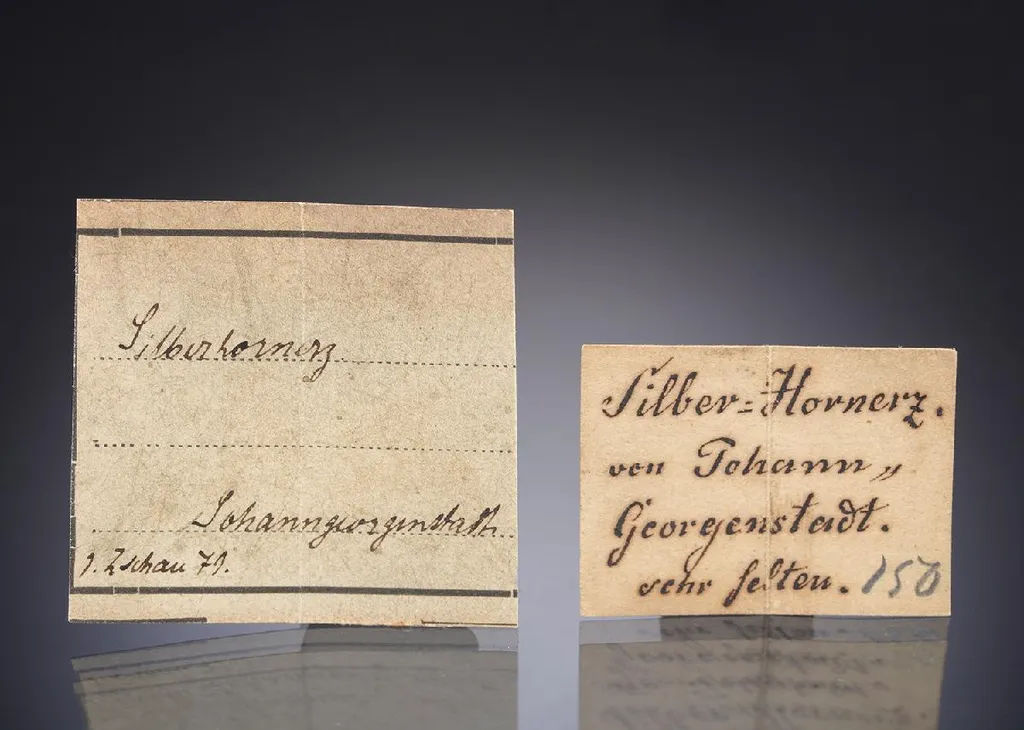 Silberhornerz
Johanngeorgenstadt
J. Zschau 79.
Silber=Hornerz.
von Johann„
Georgenstadt.
sehr selten. 150